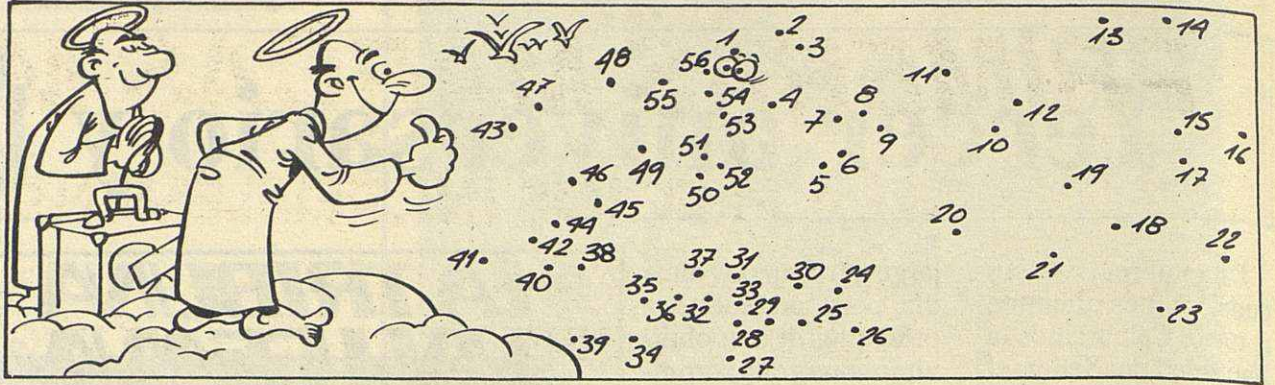 2 13 14
1 3
48 56 11
47 55 54 4 8 12
43 53 7 9 10 15 16
51 6
46 49 50 52 5 19 17
45
44 20 18
42 22
41 38 37 31 30 24 21
40 35 33
36 32 29 25 23
28 26
39 34 27